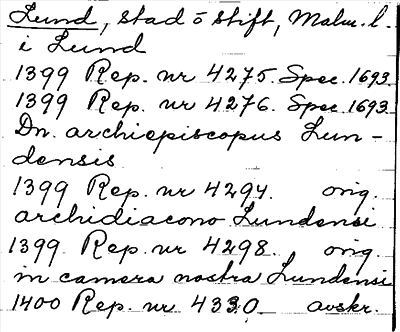 Lund, stad o stift, Malm. l.
i Lund
1399 Rep. nr 4275. Spec. 1693.
1399 Rep. nr 4276. Spec. 1693
Dn. archiepiscopus Lun-
densis
1399 Rep. nr 4294. orig.
archidiacono Lundensi
1399 Rep. nr 4298. orig.
in camera nostra Lundensi
1400 Rep. nr 4330. avskr.